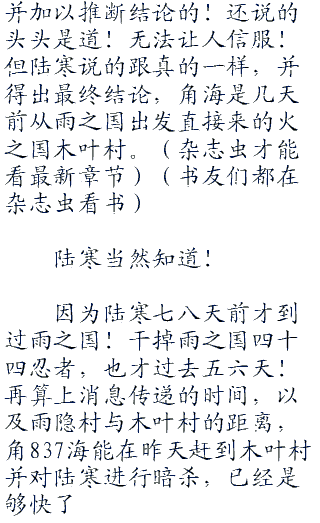 并加以推断结论的！还说的
头头是道！无法让人信服！
但陆寒说的跟真的一样，并
得出最终结论，角海是几天
前从雨之国出发直接来的火
之国木叶村。（杂志虫才能
看最新章节）（书友们都在
杂志虫看书）
陆寒当然知道！
因为陆寒七八天前才到
过雨之国！干掉雨之国四十
四忍者，也才过去五六天！
再算上消息传递的时间，以
及雨隐村与木叶村的距离，
角837海能在昨天赶到木叶村
并对陆寒进行暗杀，已经是
够快了